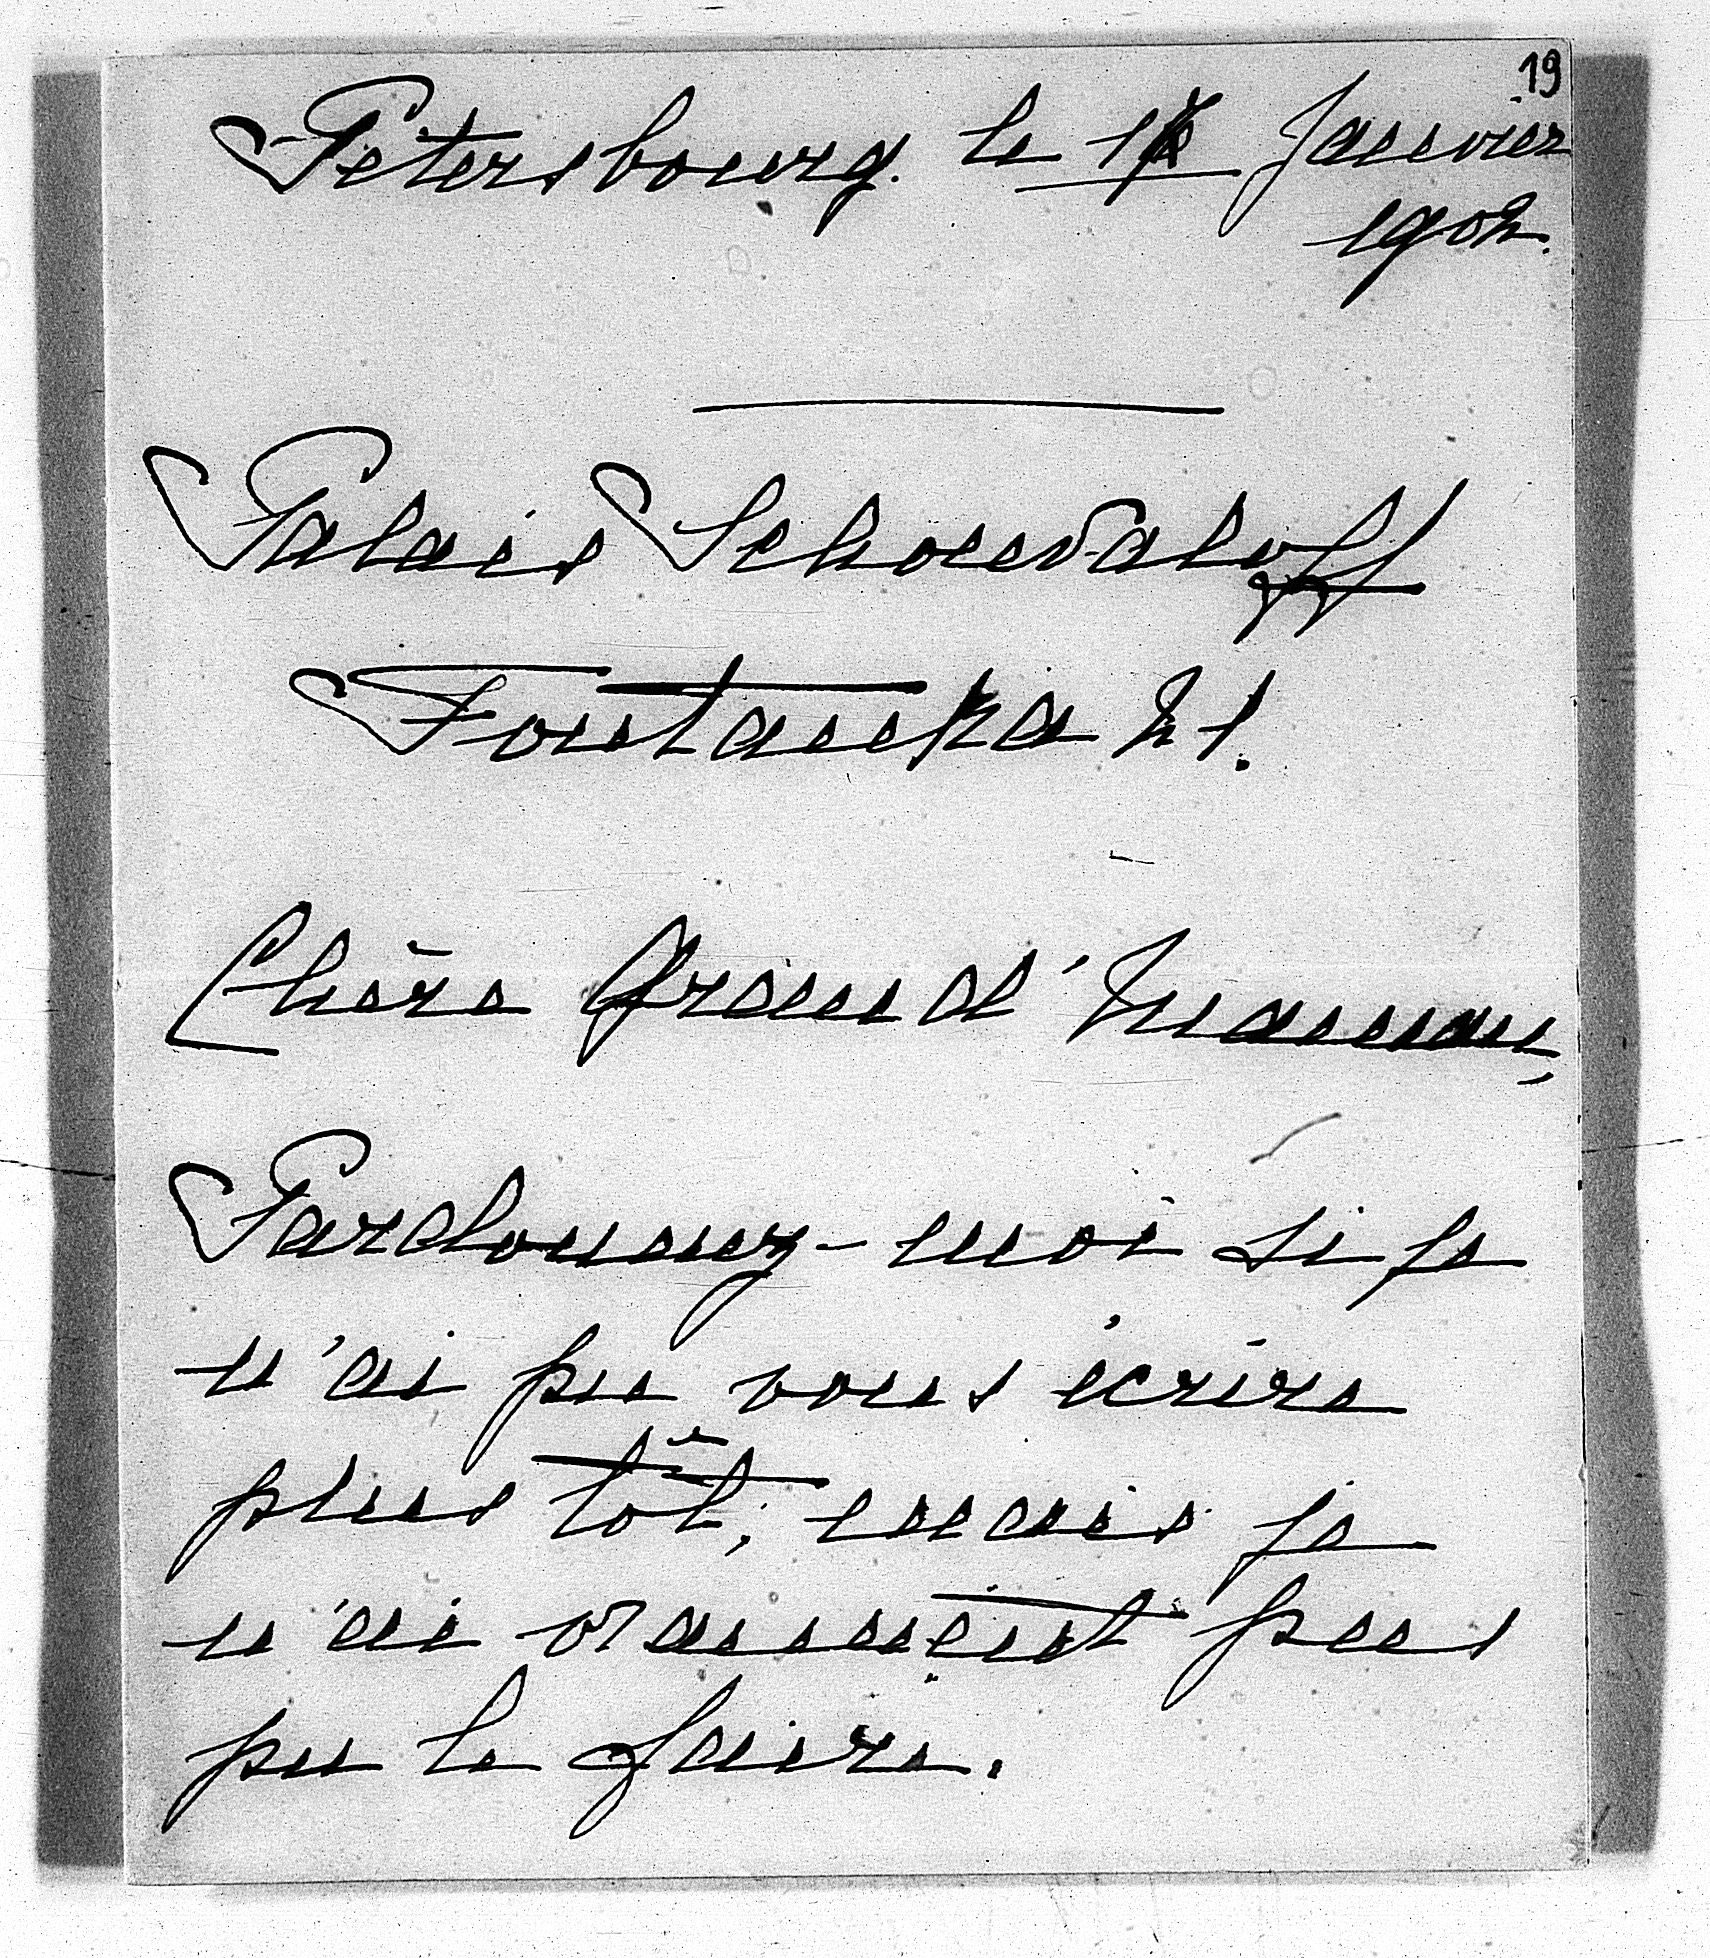 19
Pétersbourg. le Janvier
1902.
Palais Schouvaloff
Fontanka 21.
Chère Grand'Maman,
Pardonnez-moi si je
n'ai pu vous écrire
plus tôt; mais je
n'ai vraiment pas
pu le faire.